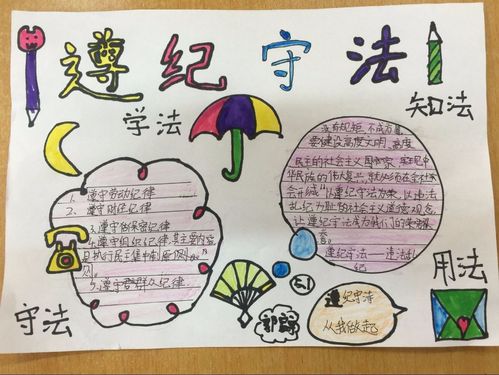 遵纪守法
学法
知法
1、遵守劳动纪律
2、遵守财经纪律
3、遵守保密纪律
4、遵守组织纪律,其主要内容
是执行民主集中制原则
5、遵守群众纪律
没有规矩,不成方圆
要建设高度文明、高度
民主的社会主义国家,实现中
华民族的伟大复兴,就必须在全社会
会形成"以遵纪守法为荣、以违法
乱纪为耻"的社会主义道德观念,
让遵纪守法成为我们的
遵纪守法——违法乱
纪
守法
用法
遵纪守法
从我做起